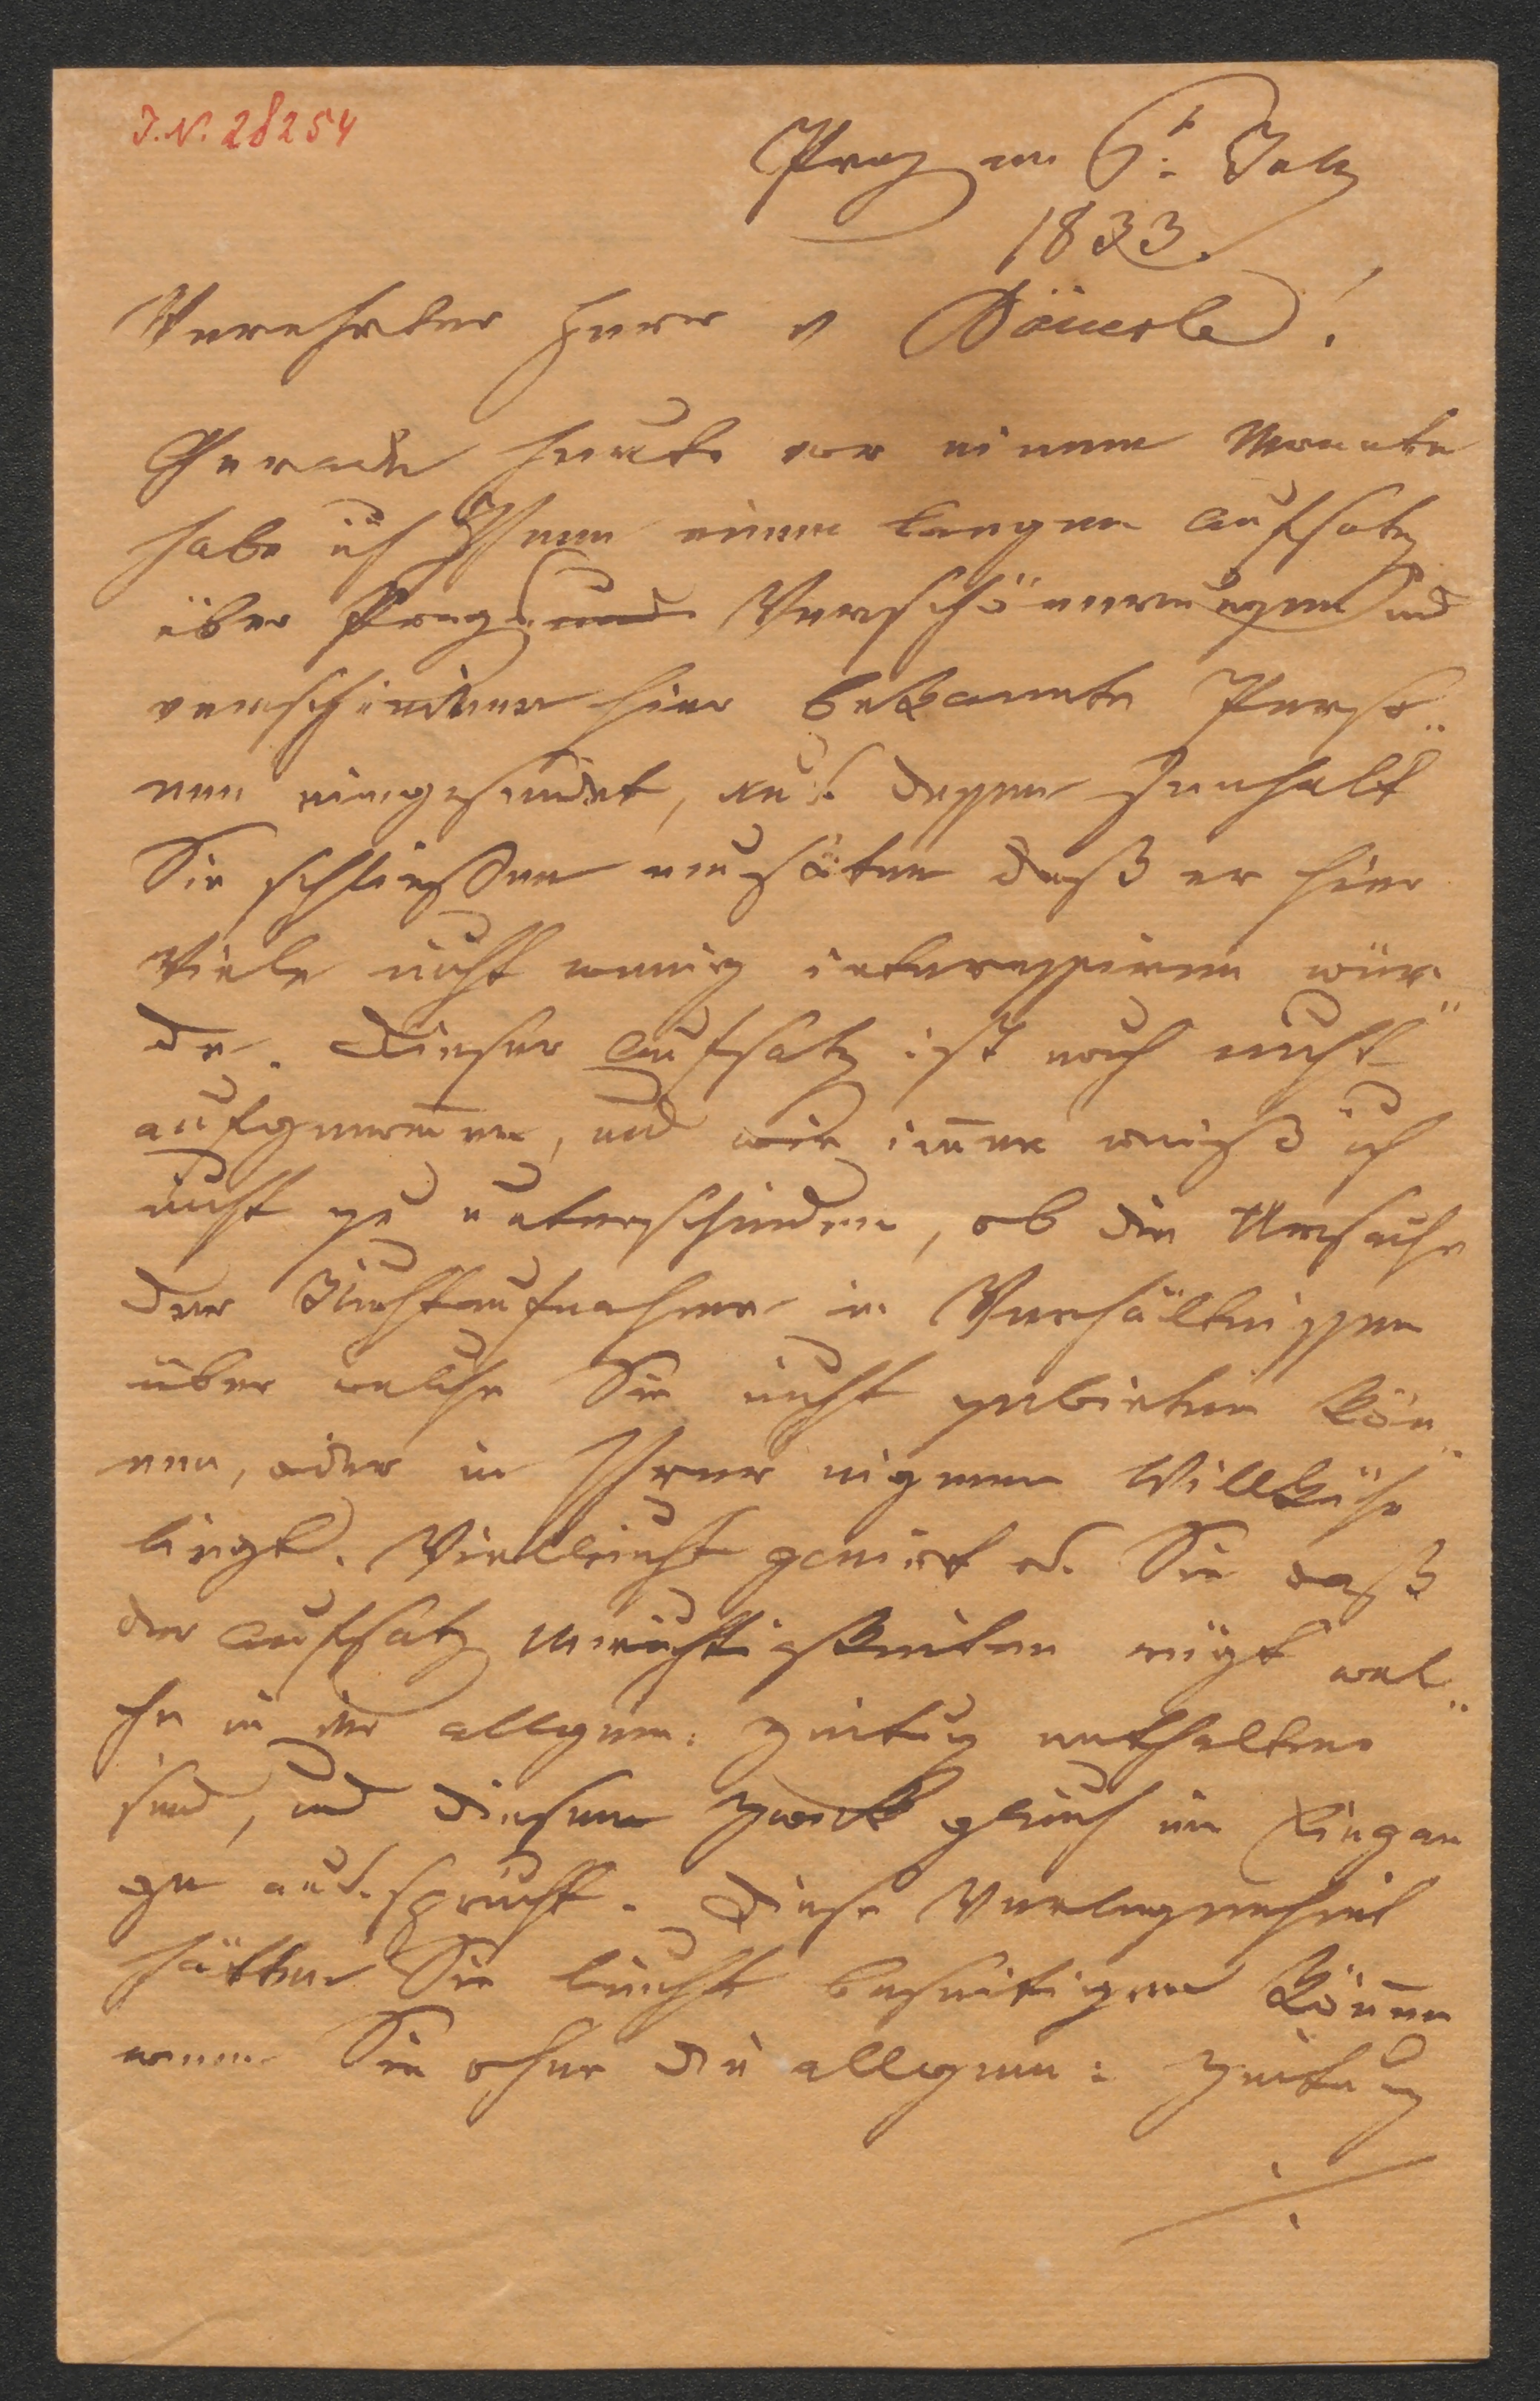 I. N. 28254
Prag am 6t: July
1833.
Verehrter Herr v Bäuerle!
Gerade heute vor einem Monate
habe ich Ihnen einen langen Aufsatz
über Prags Verschönerungen und
verschiedene hier bekannte Perso„
nen eingesendet, aus dessen Innhalt
Sie schließen mußten daß er hier
Viele nicht wenig interessiren wür„
de. Dieser Aufsatz ist noch nicht
aufgenom̄en, und wie im̄er weiß ich
nicht zu unterscheiden, ob die Ursache
der Nichtaufnahme in Verhältnissen
über welche Sie nicht gebiethen kön„
nen, oder in Ihrer eigenen Willkühr
liegt. Vielleicht genirt es Sie daß
der Aufsatz Unrichtigkeiten rügt wel„
che in der allgem: Zeitung enthalten
sind, und diesen Zweck gleich im Eingan
ge ausspricht. Diese Verlegenheit
hätten Sie leicht beseitigen kön̄en
wenn Sie ohne die allgem: Zeitung
./.